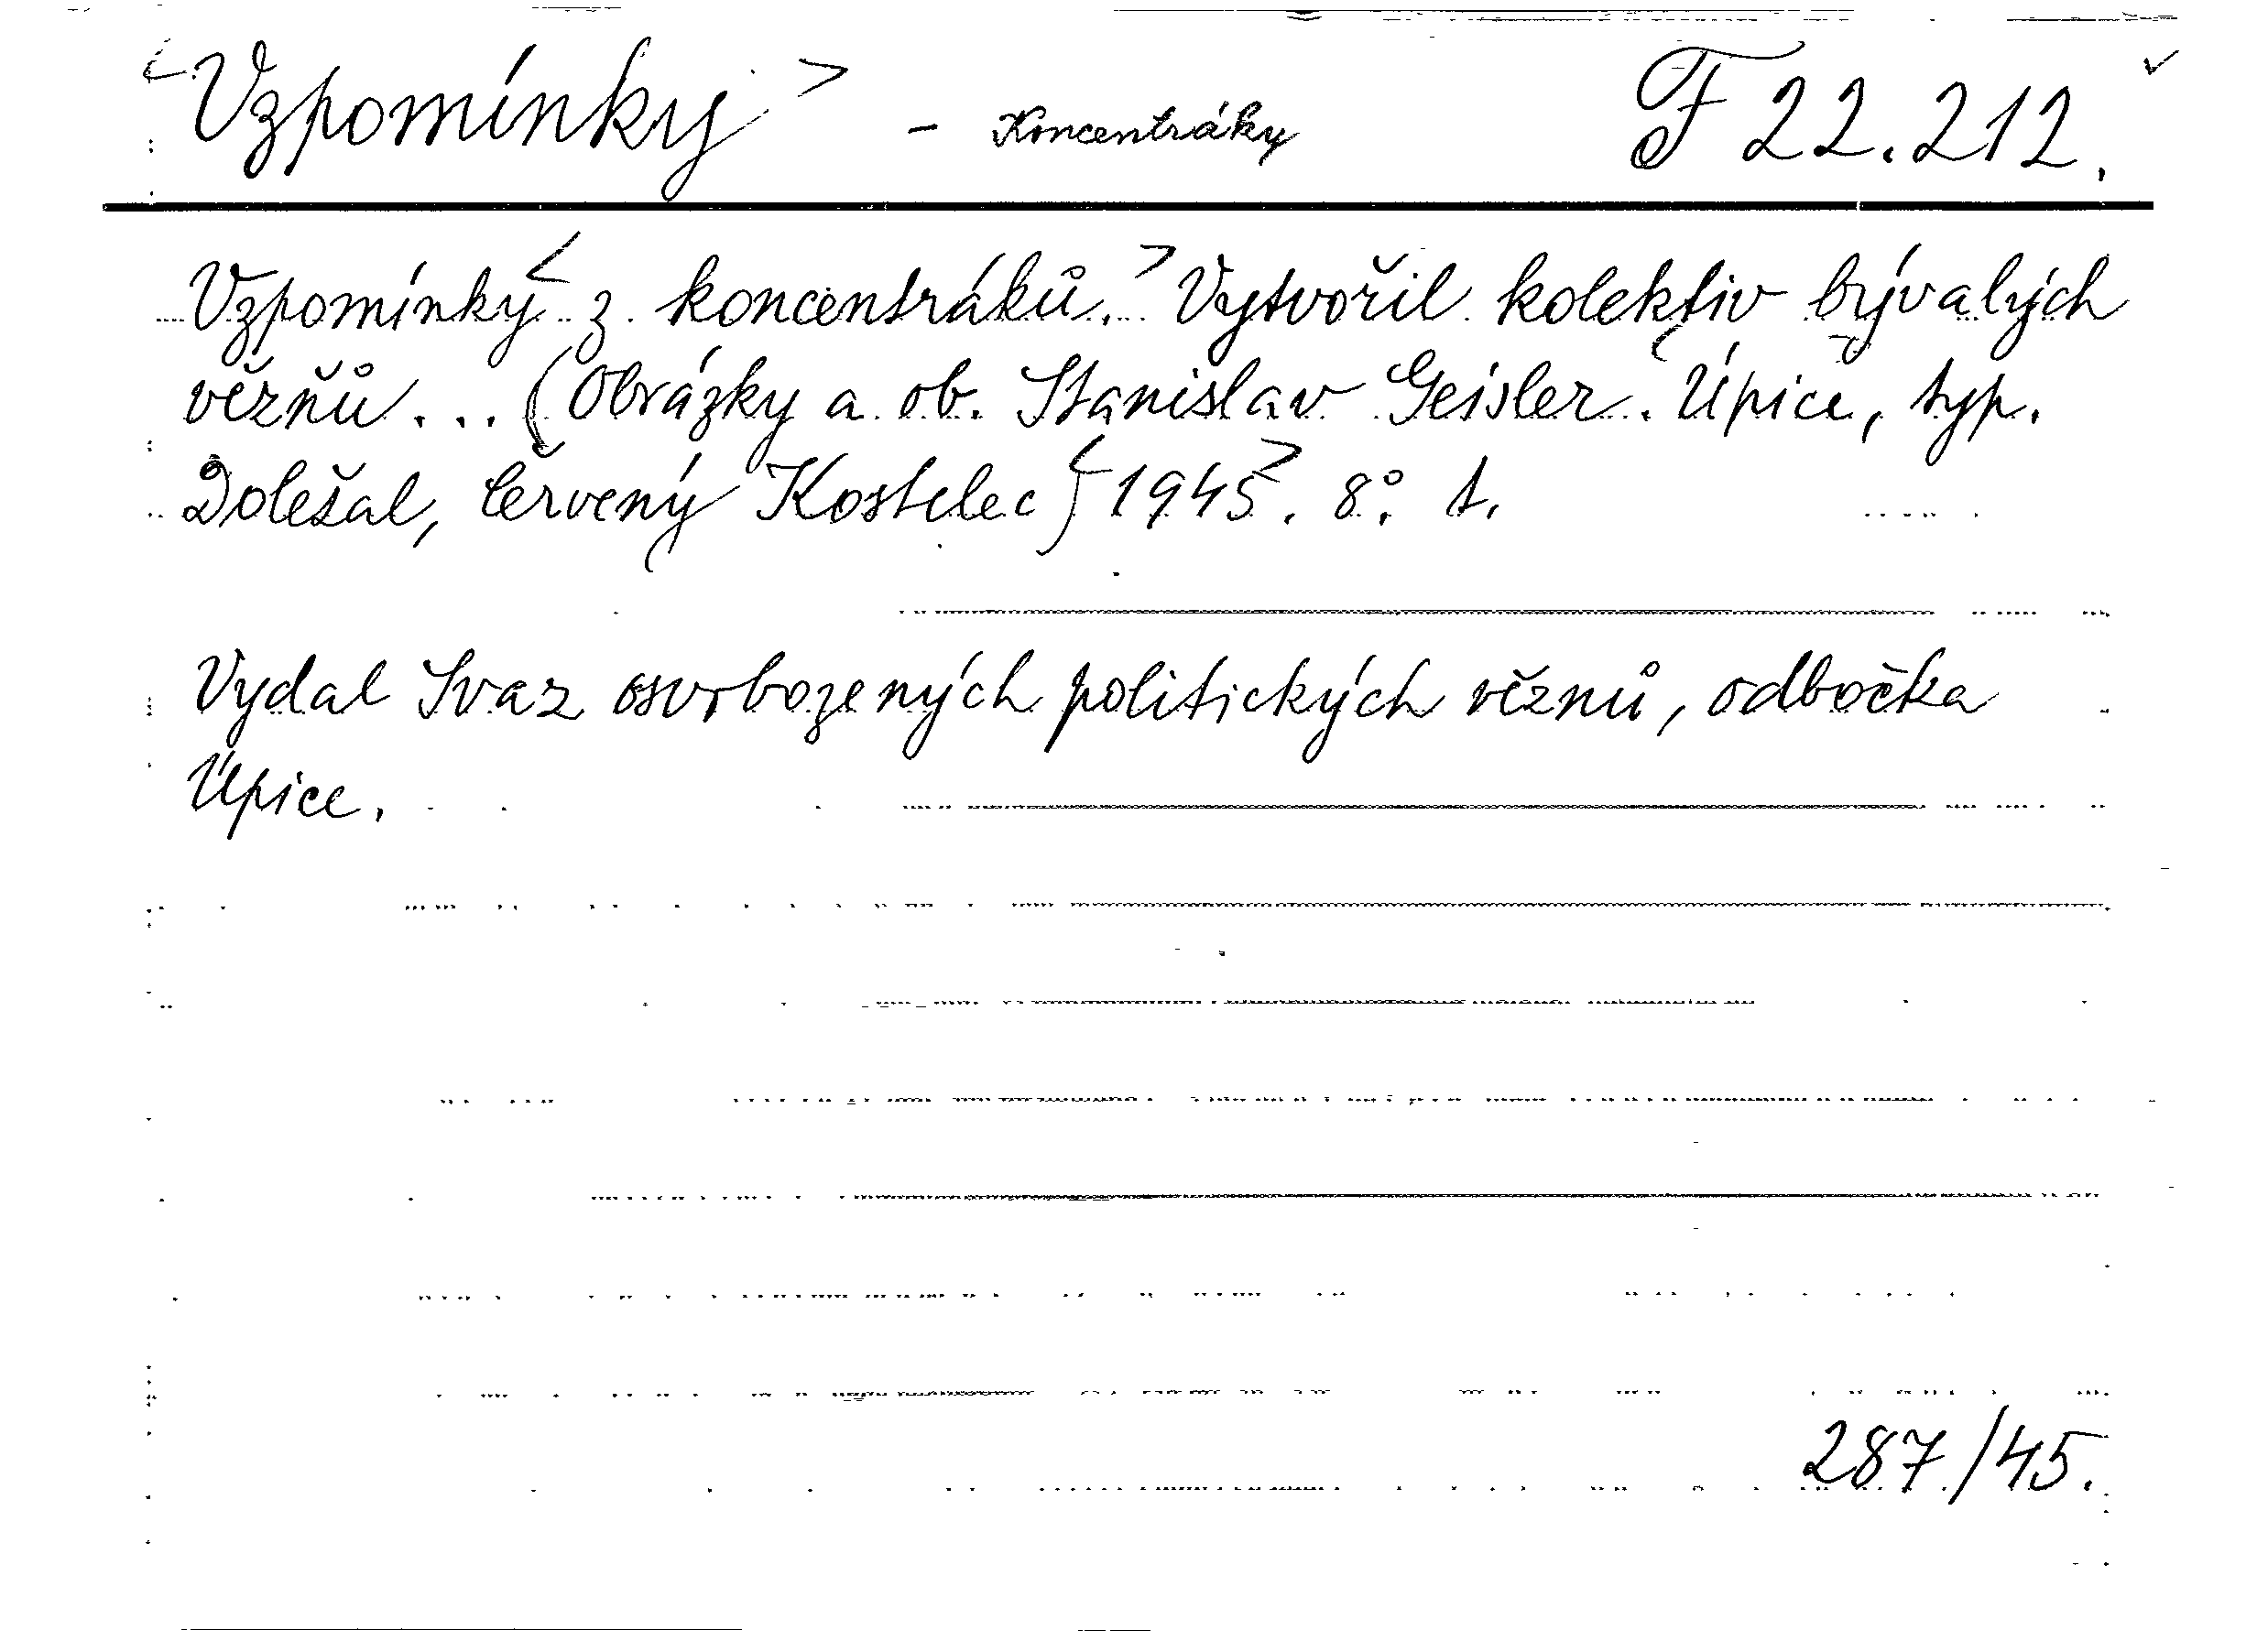 <Vzpomínky> - Koncentráky F 22.212.
Vzpomínky < z koncentráků. > Vytvořil kolektiv bývalých
vězňů... (Obrázky a ob. Stanislav Geisler. Úpice, typ.
Doležal, Červený Kostelec) <1945>. 8°. t.
Vydal Svaz osvobozených politických věznů, odbočka
Úpice.
287/45.